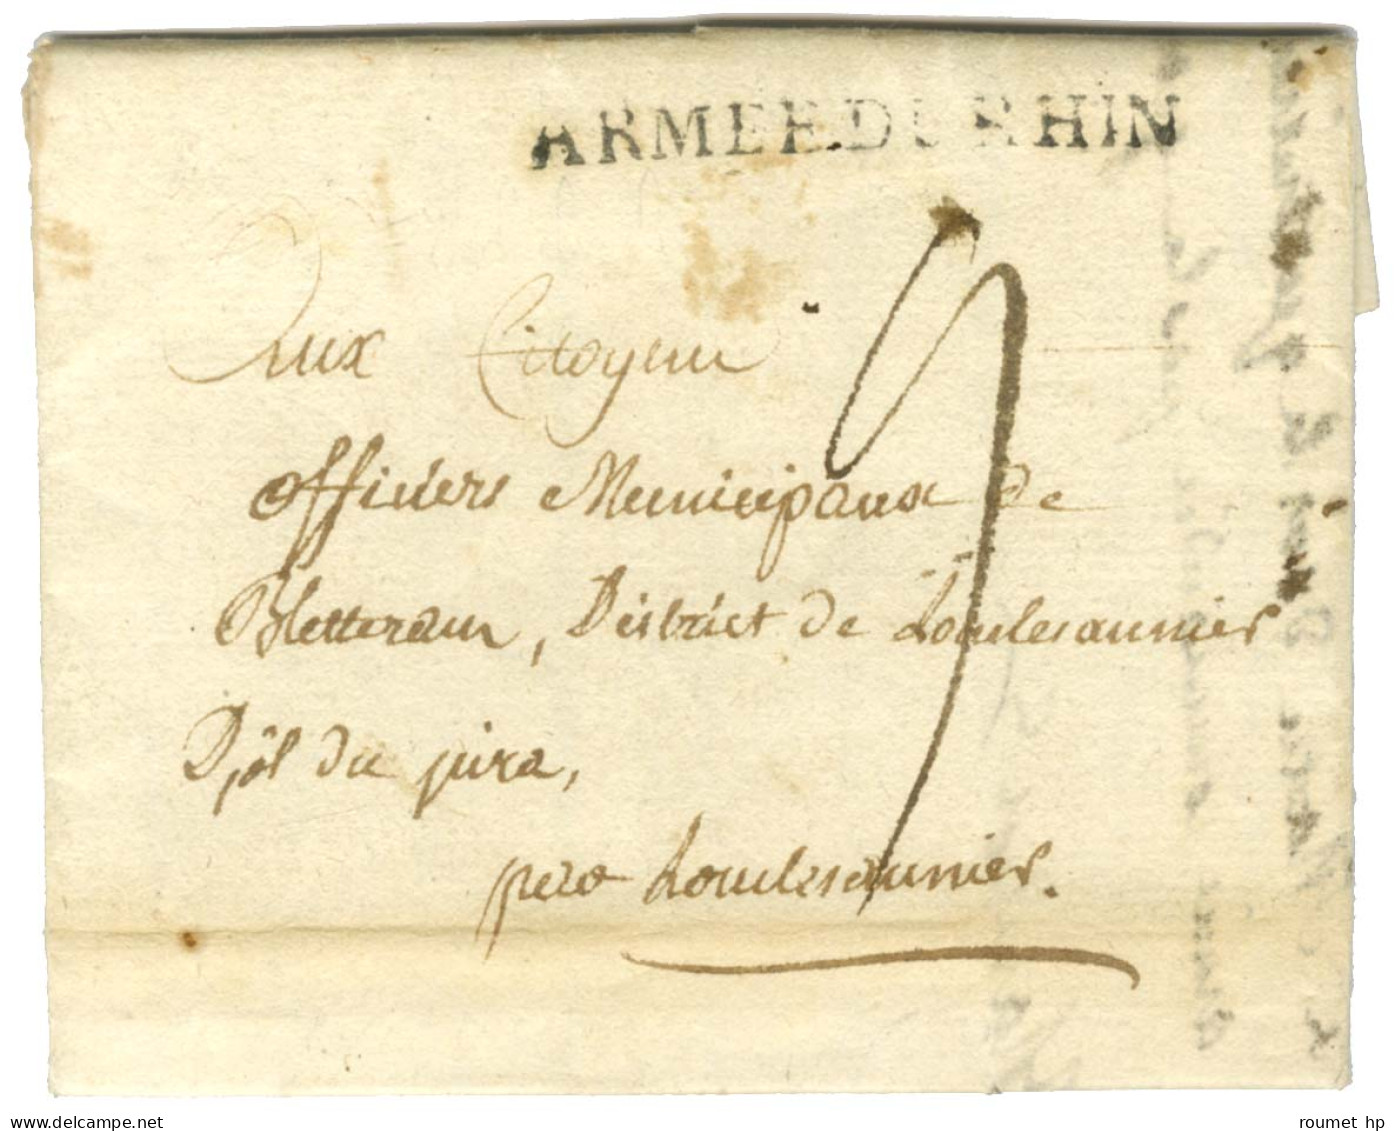 ARMEE DU RHIN
Aux Citoyens
officiers Municipaux de
Bletteran, District de Lonslesaunier
Dpt du jura,
par Lonslesaunier.
9
roumet hp